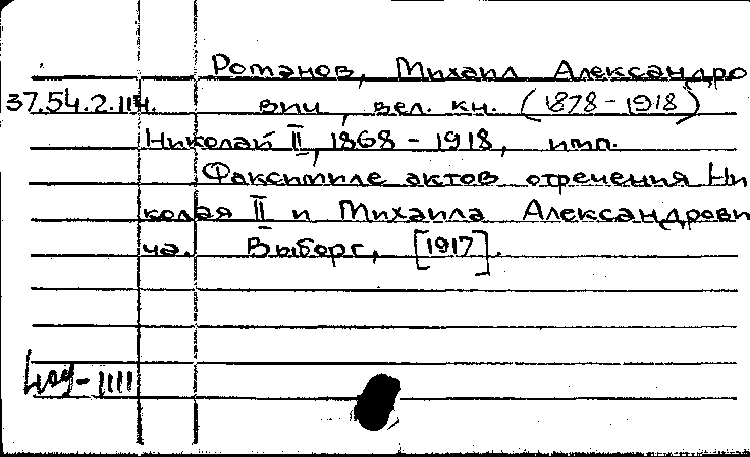 Романов, Михаил Александро
37.54.2.114. вич, вел. кн. (1878-1918)
Николай II, 1868-1918, имп.
Факсимиле актов отречения Ни
колая II и Михаила Александрови
ча. Выборг, [1917].
-1111